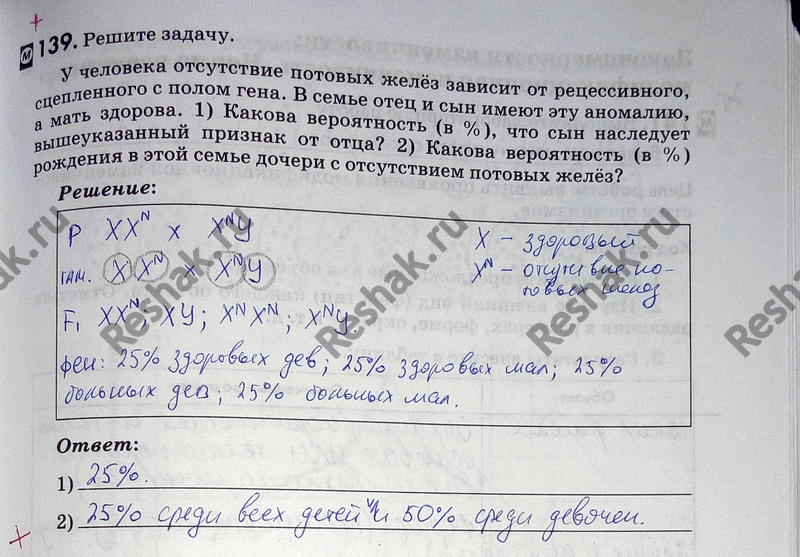 139. Решите задачу.
У человека отсутствие потовых желёз зависит от рецессивного,
сцепленного с полом гена. В семье отец и сын имеют эту аномалию,
а мать здорова. 1) Какова вероятность (в %), что сын наследует
вышеуказанный признак от отца? 2) Какова вероятность (в %)
рождения в этой семье дочери с отсутствием потовых желёз?
Решение:
P XXᴺ x XᴺY
X – здоровый
гам. X Xᴺ x Xᴺ Y
Xᴺ – отсутствие по-
товых желез
F₁ XXᴺ; XY; XᴺXᴺ; XᴺY.
фен: 25% здоровых дев; 25% здоровых мал; 25%
больных дев; 25% больных мал.
Ответ:
1) 25%.
2) 25% среди всех детей и 50% среди девочек.
Reshak.ru
Reshak.ru
Reshak.ru
Reshak.ru